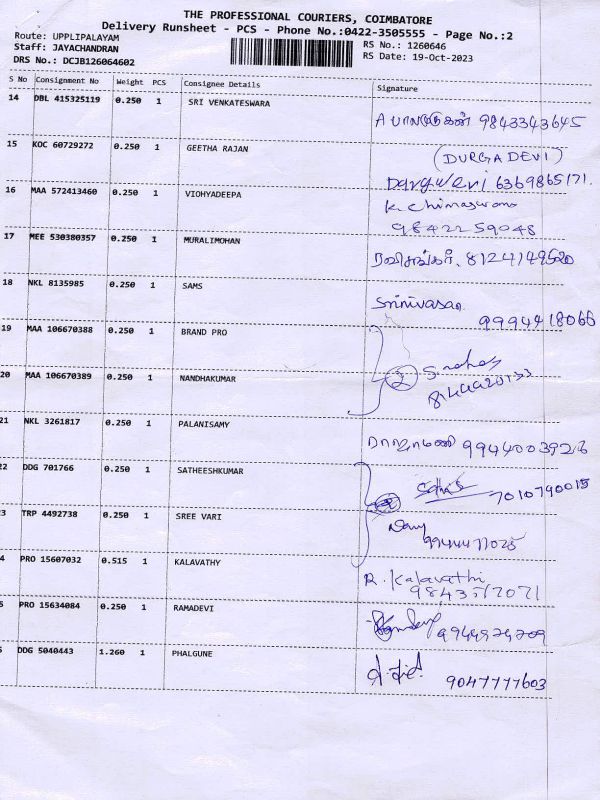 THE PROFESSIONAL COURIERS, COIMBATORE
Delivery Runsheet - PCS - Phone No.:0422-3505555 - Page No.:2
Route: UPPLIPALAYAM
RS No.: 1260646
Staff: JAYACHANDRAN
RS Date: 19-Oct-2023
DRS No.: DCJB126064602
S No Consignment No Weight PCS Consignee Details Signature
14 DBL 415325119 0.250 1 SRI VENKATESWARA
9843343645
15 KOC 60729272 0.250 1 GEETHA RAJAN
(DURGA DEVI)
6369865171
16 MAA 572413460 0.250 1 VIOHYADEEPA
9842259048
17 MEE 530380357 0.250 1 MURALIMOHAN
8124149520
18 NKL 8135985 0.250 1 SAMS
Srinivasan
9994418066
19 MAA 106670388 0.250 1 BRAND PRO
20 MAA 106670389 0.250 1 NANDHAKUMAR
2
21 NKL 3261817 0.250 1 PALANISAMY
9944003926
22 DDG 701766 0.250 1 SATHEESHKUMAR
7010790015
3 TRP 4492738 0.250 1 SREE VARI
4 PRO 15607032 0.515 1 KALAVATHY
R. Kalavathi
5 PRO 15634084 0.250 1 RAMADEVI
DDG 5040443 1.260 1 PHALGUNE
9047777603